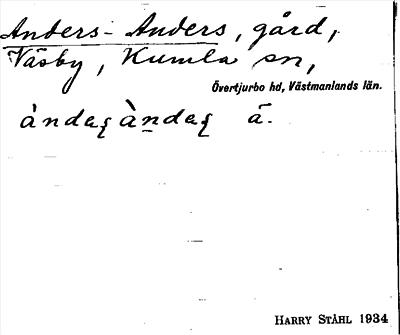 Anders-Anders, gård,
Väsby, Kumla sn,
Övertjurbo hd, Västmanlands län.
ä.
HARRY STÅHL 1934